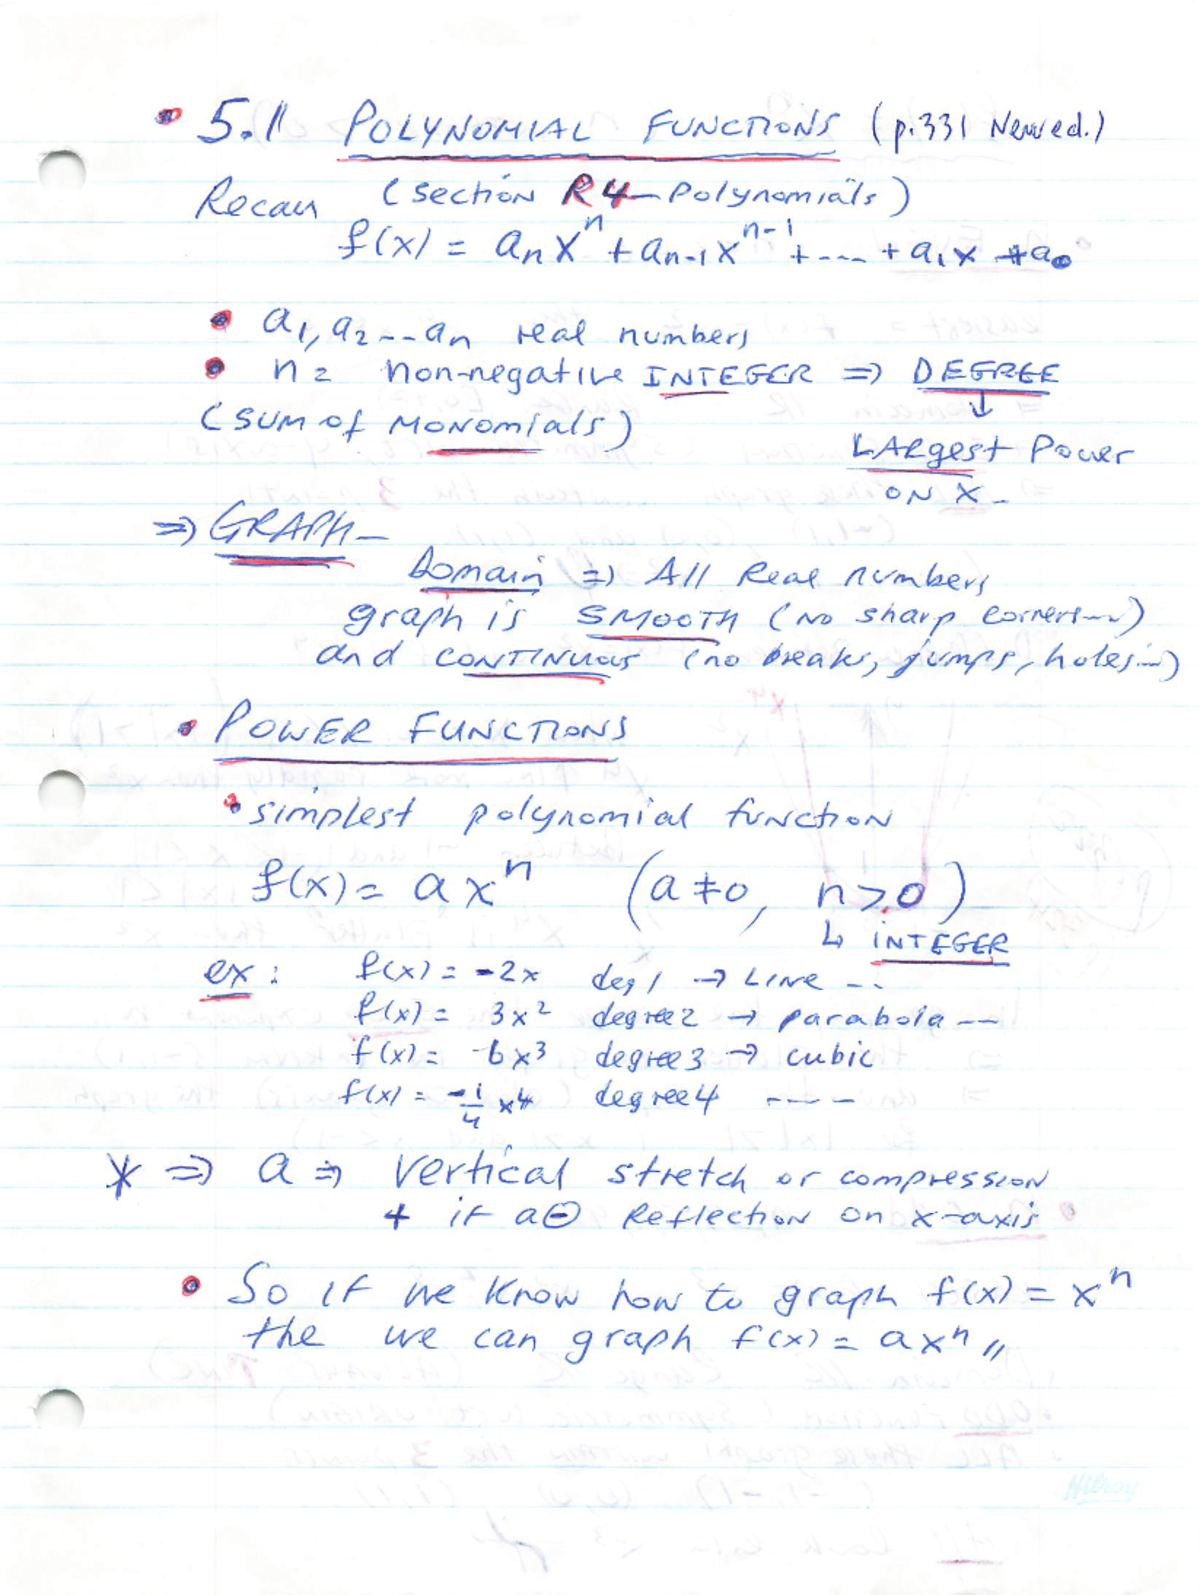 • 5.1 POLYNOMIAL FUNCTIONS (p.331 New ed.)
Recall (section R4 - Polynomials)
f(x) = aₙxⁿ + aₙ₋₁xⁿ⁻¹ + --- + a₁x + a₀
• a₁, a₂ -- aₙ real numbers
• n = non-negative INTEGER ⇒ DEGREE
↓
(SUM of MONOMIALS)
LARgest Power
ON x -
⇒ GRAPH -
Domain ⇒ All Real numbers
graph is SMOOTH (no sharp corners...)
and CONTINUOUS (no breaks, jumps, holes...)
• POWER FUNCTIONS
• simplest polynomial function
f(x) = axⁿ (a ≠ 0, n > 0)
↳ INTEGER
ex: f(x) = -2x deg 1 → LINE --
f(x) = 3x² degree 2 → parabola --
f(x) = -6x³ degree 3 → cubic
f(x) = -1/4 x⁴ degree 4 ----
* ⇒ a ⇒ Vertical stretch or compression
+ if a ⊖ Reflection on x-axis
• So if we know how to graph f(x) = xⁿ
the we can graph f(x) = axⁿ //